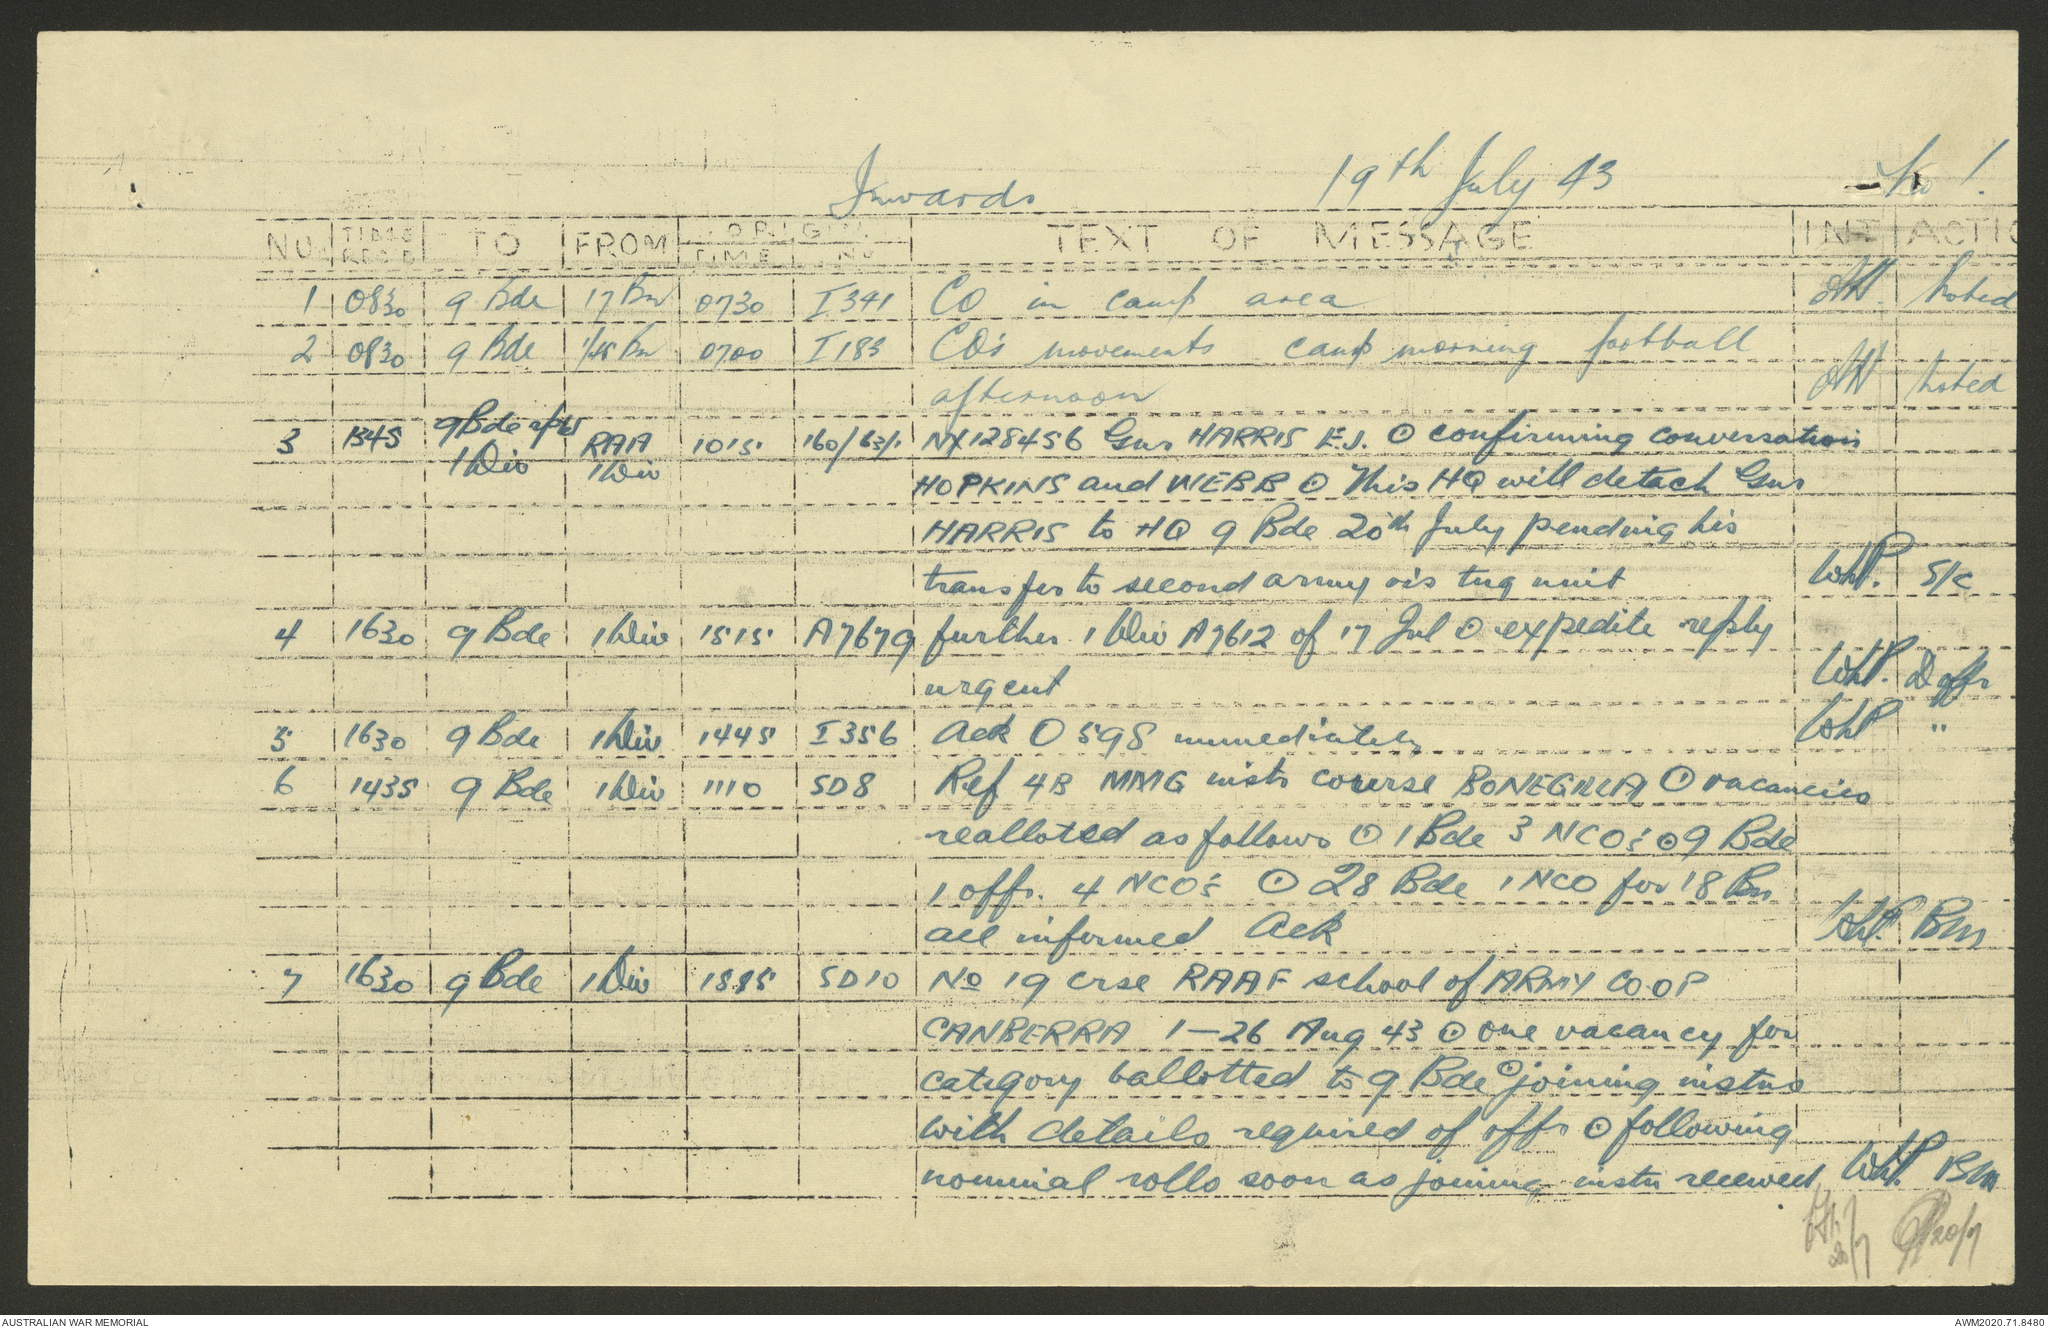 Inwards 19th July 43 No 1.
NO. TIME RECD TO FROM ORIGIN TIME NO TEXT OF MESSAGE INT ACTIO
1 0830 9 Bde 17 Bn 0730 I341 CO in camp area noted
2 0830 9 Bde 1/45 Bn 0700 I183 CO's movements camp morning football
afternoon noted
3 1345 9 Bde rptd 1 Div RAA 1 Div 1015 160/63/1 NX128456 Gnr HARRIS E.J. ⊙ confirming conversation
HOPKINS and WEBB ⊙ This HQ will detach Gnr
HARRIS to HQ 9 Bde 20th July pending his
transfer to second army vis tng unit WHP. S/C
4 1630 9 Bde 1 Div 1515 A7679 further 1 Div A7612 of 17 Jul ⊙ expedite reply
urgent WHP. D offr
5 1630 9 Bde 1 Div 1445 I356 Ack O598 immediately WHP "
6 1435 9 Bde 1 Div 1110 SD8 Ref 4B MMG instr course BONEGILLA ⊙ vacancies
realloted as follows ⊙ 1 Bde 3 NCO's ⊙ 9 Bde
1 offr. 4 NCO's ⊙ 28 Bde 1 NCO for 18 Bn
all informed Ack WHP. BM
7 1630 9 Bde 1 Div SD10 No 19 crse RAAF school of ARMY COOP
CANBERRA 1-26 Aug 43 ⊙ one vacancy for
category ballotted to 9 Bde ⊙ joining instns
with details required of offr ⊙ following
nominal rolls soon as joining instn received WHP. BM
20/7 20/7
AUSTRALIAN WAR MEMORIAL AWM2020.71.8480